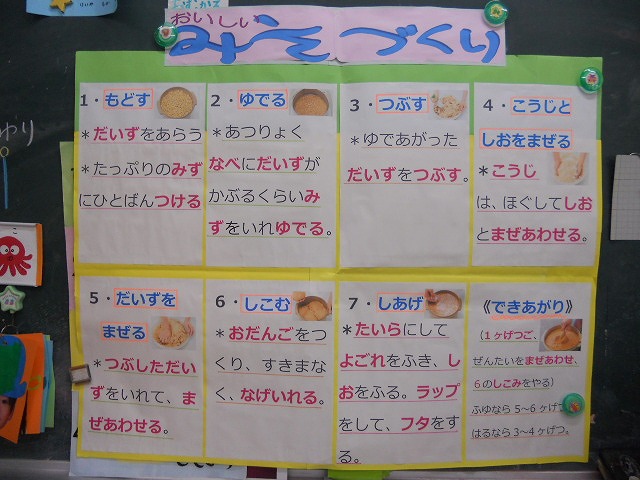 おいしい
みそづくり
1・もどす
＊だいずをあらう
＊たっぷりのみず
にひとばんつける
2・ゆでる
＊あつりょく
なべにだいずが
かぶるくらいみ
ずをいれゆでる。
3・つぶす
＊ゆであがった
だいずをつぶす。
4・こうじと
しおをまぜる
＊こうじ
は、ほぐしてしお
とまぜあわせる。
5・だいずを
まぜる
＊つぶしただい
ずをいれて、ま
ぜあわせる。
6・しこむ
＊おだんごをつ
くり、すきまな
く、なげいれる。
7・しあげ
＊たいらにして
よごれをふき、し
おをふる。ラップ
をして、フタをす
る。
《できあがり》
(1ヶげつご、
ぜんたいをまぜあわせ、
6のしこみをやる)
ふゆなら5～6ヶげつ
はるなら3～4ヶげつ。